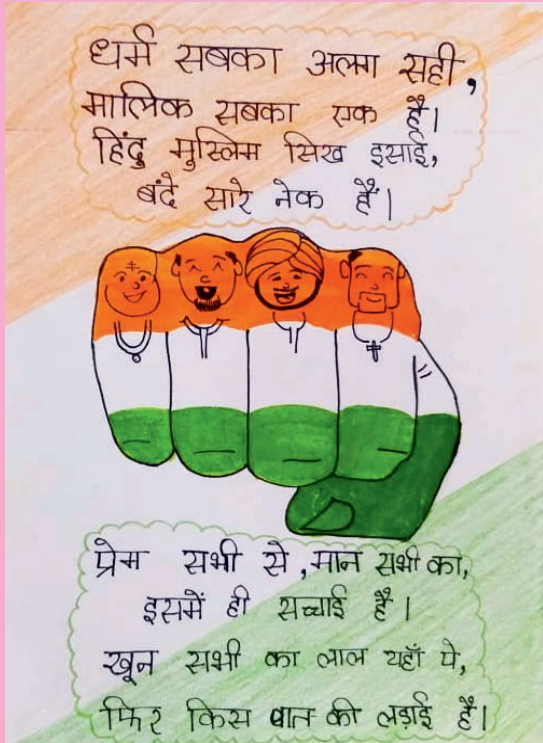 धर्म सबका अलग सही,
मालिक सबका एक है।
हिंदु मुस्लिम सिख इसाई,
बंदे सारे नेक हैं।
प्रेम सभी से, मान सभी का,
इसमें ही सच्चाई है।
खून सभी का लाल यहाँ पे,
फिर किस बात की लड़ाई है।